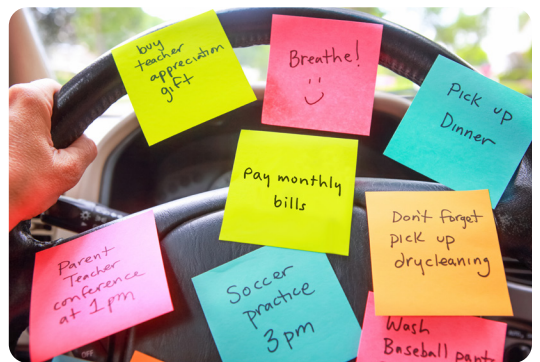 buy
teacher
appreciation
gift
Breathe!
Pick up
Dinner
Pay monthly
bills
Don't forget
pick up
drycleaning
Parent
Teacher
conference
at 1pm
Soccer
practice
3pm
Wash
Baseball pants
OFF